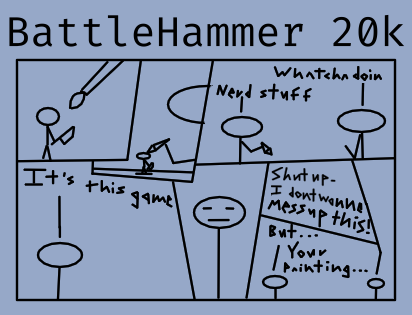 BattleHammer 20k
Whatcha doin
Nerd stuff
It's this game
Shut up.
I dont wanna
mess up this!
But...
Your
painting...